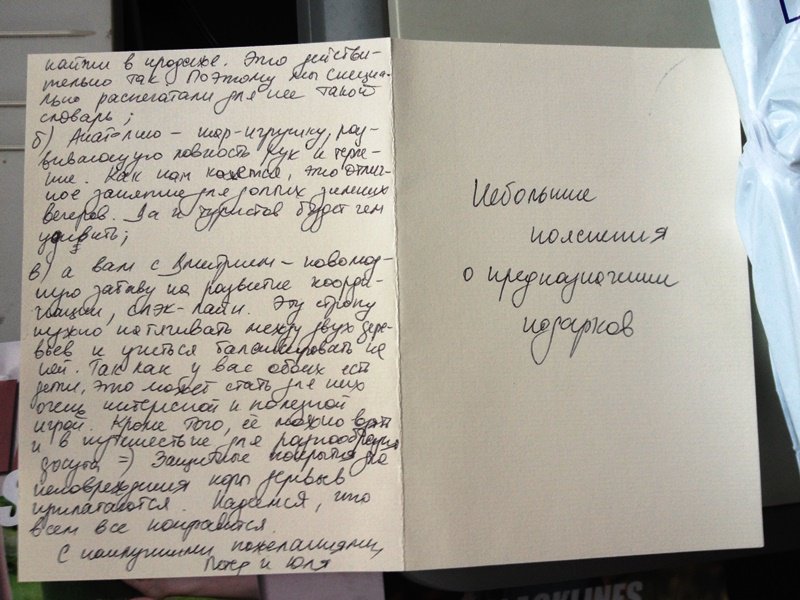 найти в продаже. Это действи-
тельно так Поэтому мы специа-
льно распечатали для нее такой
словарь;
б) Анатолию – шар-игрушку, раз-
вивающую ловкость рук и терпе-
ние. Как нам кажется, это отлич-
ное занятие для долгих зимних
вечеров. Да и туристов будет чем
удивить;
в) а вам с Дмитрием – новомод-
ную забаву на развитие коорди-
нации, слэк-лайн. Эту стропу
нужно натягивать между двух дере-
вьев и учиться балансировать на
ней. Так как у вас обоих есть
дети, это может стать для них
очень интересной и полезной
игрой. Кроме того, её можно взять
и в путешествие для разнообразия
досуга =) Защитные покрытия для
неповреждения коры деревьев
прилагаются. Надеемся, что
всем все понравится.
С наилучшими пожеланиями,
и Юля
Небольшие
пояснения
о предназначении
подарков
SLACKLINES